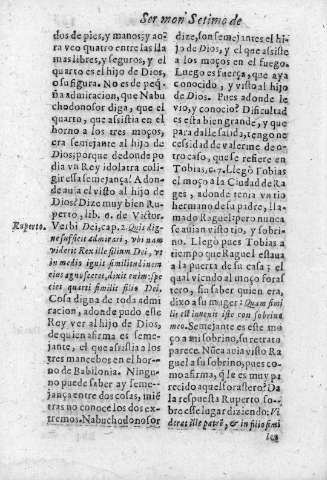 Sermon Setimo de
dos de pies, y manos; y ao
ra veo quatro entre las lla
mas libres, y seguros, y el
quarto es el hijo de Dios,
o su figura. No es de peq̃
ña admiracion, que Nabu
chodonosor diga, que el
quarto, que assistia en el
horno a los tres moços,
era semejante al hijo de
Dios; porque de donde po
dia vn Rey idolatra coli-
gir essa semejança? A don-
de auia el visto al hijo de
Dios? Dize muy bien Ru-
perto, lib. 6. de Victor.
Ruperto. Verbi Dei, cap. 2. Quis dig-
ne sufficit admirari, vbi nam
viderit Rex ille filium Dei, vt
in medio ignis similitudinem
eius agnosceret, dixit enim: spe
cies quarti similis filio Dei.
Cosa digna de toda admi
racion, adonde pudo este
Rey ver al hijo de Dios,
de quien afirma es seme-
jante, el que assistia a los
tres mancebos en el hor-
no de Babilonia. Ningu-
no puede saber ay seme-
jança entre dos cosas, miẽ
tras no conoce los dos ex-
tremos. Nabuchodonosor
dize, son semejantes el hi-
jo de Dios, y el que assiste
a los moços en el fuego.
Luego es fuerça, que aya
conocido, y visto al hijo
de Dios. Pues adonde le
vio, y conocio? Dificultad
es esta bien grande, y que
para dalle salida, tengo ne
cessidad de valerme de o-
tro caso, que se refiere en
Tobias, c. 7. Llegò Tobias
el moço a la Ciudad de Ra
ges, adonde tenia vn tio
hermano de su padre, lla-
mado Raguel: pero nunca
se auian visto tio, y sobri-
no. Llegò pues Tobias a
tiempo que Raguel estaua
a la puerta de su casa; el
qual viendo al moço foraf
tero, sin saber quien era,
dixo a su muger: Quam simi
lis est iuuenis iste con sobrino
meo. Semejante es este mo
ço a mi sobrino, su retrato
parece. Nũca auia visto Ra
guel a su sobrino, pues co-
mo afirma, q̃ le es muy pa
recido aquel forastero? Da
la respuesta Ruperto so-
bre este lugar diziendo: Vi
derat ille patrẽ, & in filio simi